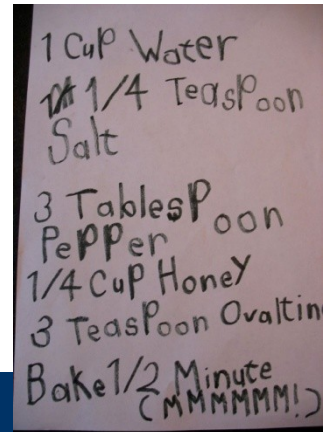 1 CuP Water
1/4 TeasPoon
Salt
3 TablesPoon
PePPer
1/4 CuP Honey
3 TeasPoon Ovaltin
Bake 1/2 Minute
(MMMMMM!)